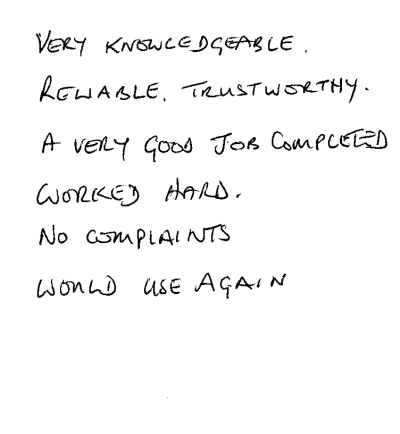 VERY KNOWLEDGEABLE.
RELIABLE. TRUSTWORTHY.
A VERY GOOD JOB COMPLETED
WORKED HARD.
NO COMPLAINTS
WOULD USE AGAIN